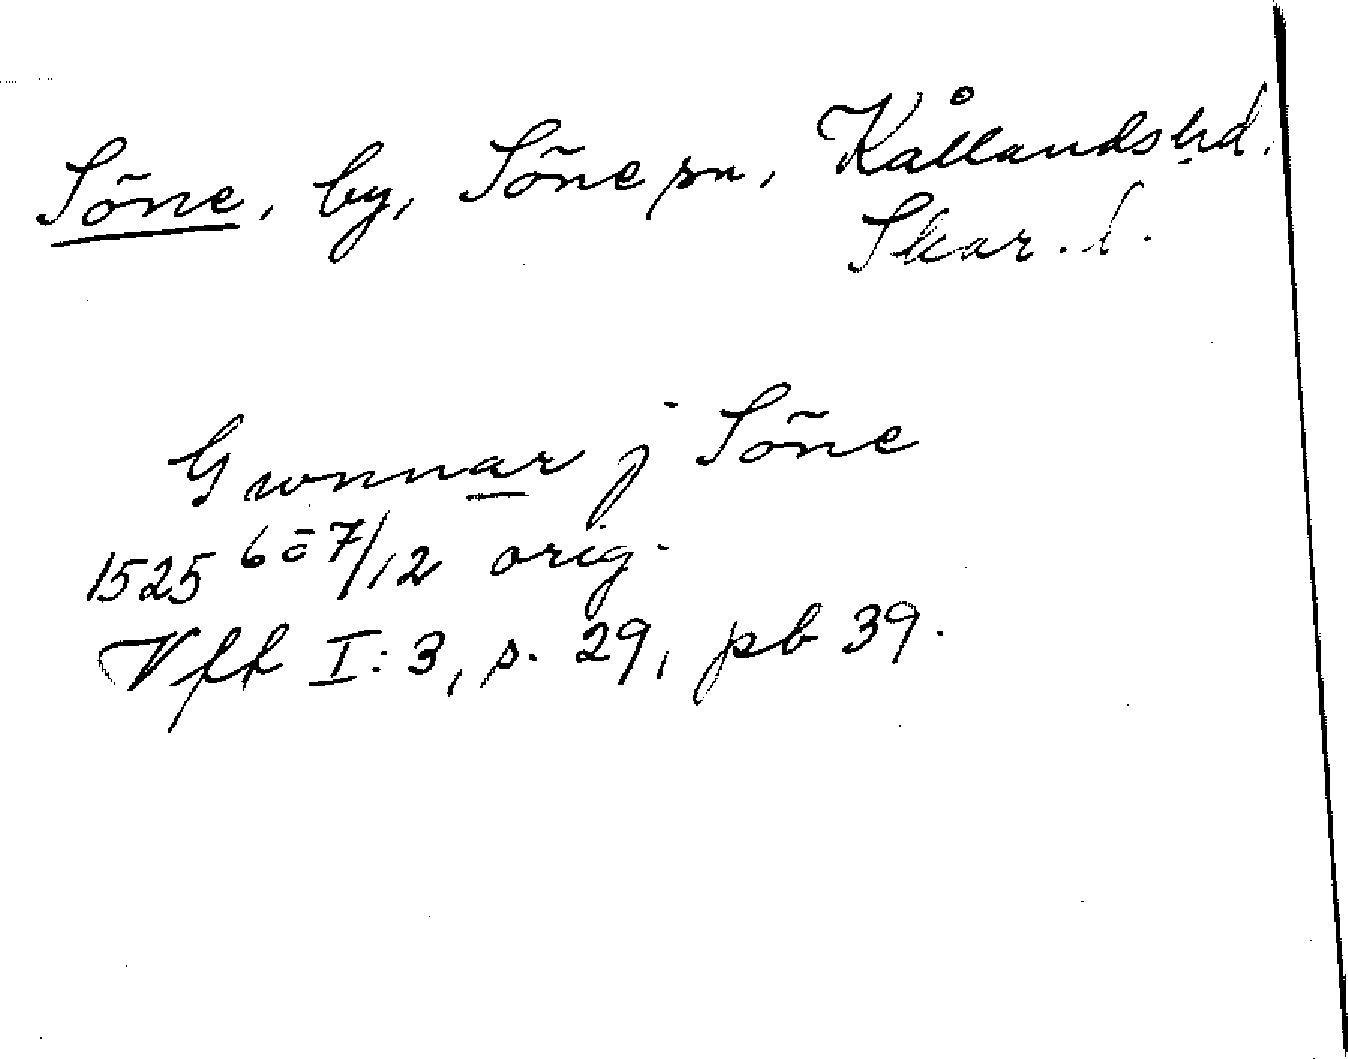 Söne, by, Söne sn, Kållandshd.
Skar. l.
Gwnnar j Söne
1525 6 o 7/12 orig.
Vfk I:3, s. 29, pb 39.